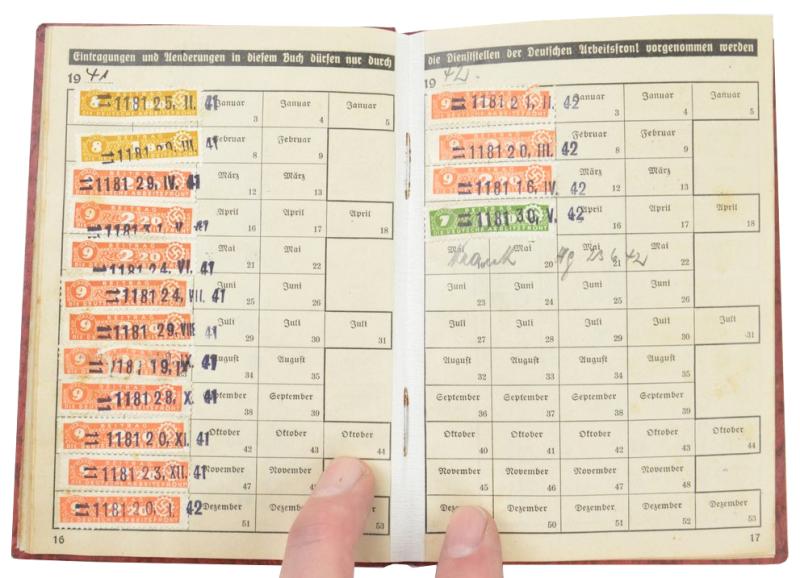 Eintragungen und Aenderungen in diesem Buch dürfen nur durch
19 41
8 1181 25. II. 41 Januar 3 Januar 4 Januar 5
8 1181 III. 41 Februar 8 Februar 9
9 1181 29. IV. 41 März 12 März 13
9 2.20 1181 V. 41 April 16 April 17 April 18
DIE DEUTSCHE ARBEITSFRONT
9 2.20 1181 24. VI. 41 Mai 21 Mai 22
BEITRAG
9 1181 24. VII. 41 Juni 25 Juni 26
BEITRAG
9 1181 29. VIII. 41 Juli 29 Juli 30 Juli 31
BEITRAG
9 1181 19. 41 August 34 August 35
BEITRAG
9 1181 28. X. 41 September 38 September 39
BEITRAG
9 1181 20. XI. 41 Oktober 42 Oktober 43 Oktober 44
BEITRAG
9 1181 23. XII. 41 November 47 November 48
BEITRAG
9 1181 20. I. 42 Dezember 51 Dezember 52 Dezember 53
16
die Dienststellen der Deutschen Arbeitsfront vorgenommen werden
19 42.
9 1181 21. II. 42 Januar 3 Januar 4 Januar 5
9 1181 20. III. 42 Februar 7 Februar 8
9 1181 16. IV. 42 März 12 März 13
7 1181 30. V. 42 April 16 April 17 April 18
DIE DEUTSCHE ARBEITSFRONT
Mai Mai 20 Mai 21 Mai 22
Krank 42
Juni 23 Juni 24 Juni 25 Juni 26
Juli 27 Juli 28 Juli 29 Juli 30 Juli 31
August 32 August 33 August 34 August 35
September 36 September 37 September 38 September 39
Oktober 40 Oktober 41 Oktober 42 Oktober 43 Oktober 44
November 45 November 46 November 47 November 48
Dezember Dezember 50 Dezember 51 Dezember 52 Dezember 53
17